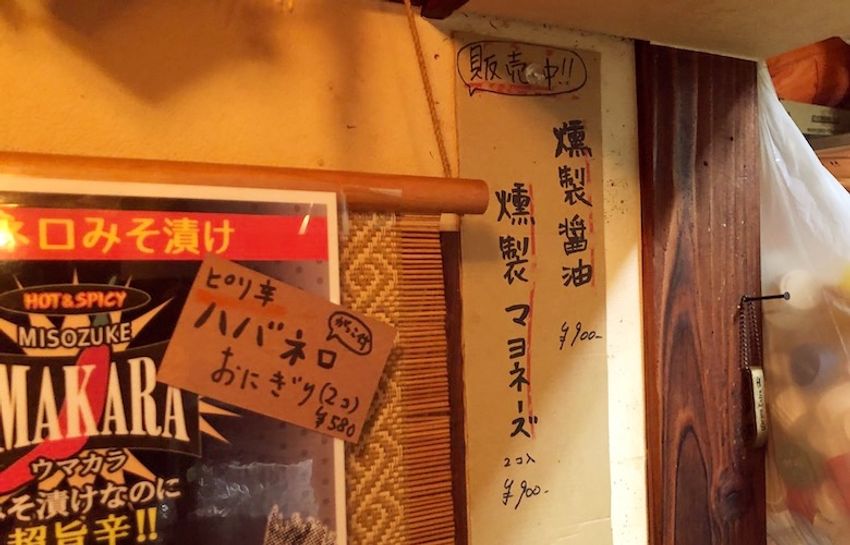 販売中!!
燻製醤油
¥900-
燻製マヨネーズ
2コ入
¥900-
ネロみそ漬け
HOT&SPICY
MISOZUKE
MAKARA
ウマカラ
みそ漬けなのに
超旨辛!!
ピリ辛
ハバネロ
がっこ付
おにぎり(2コ)
¥580